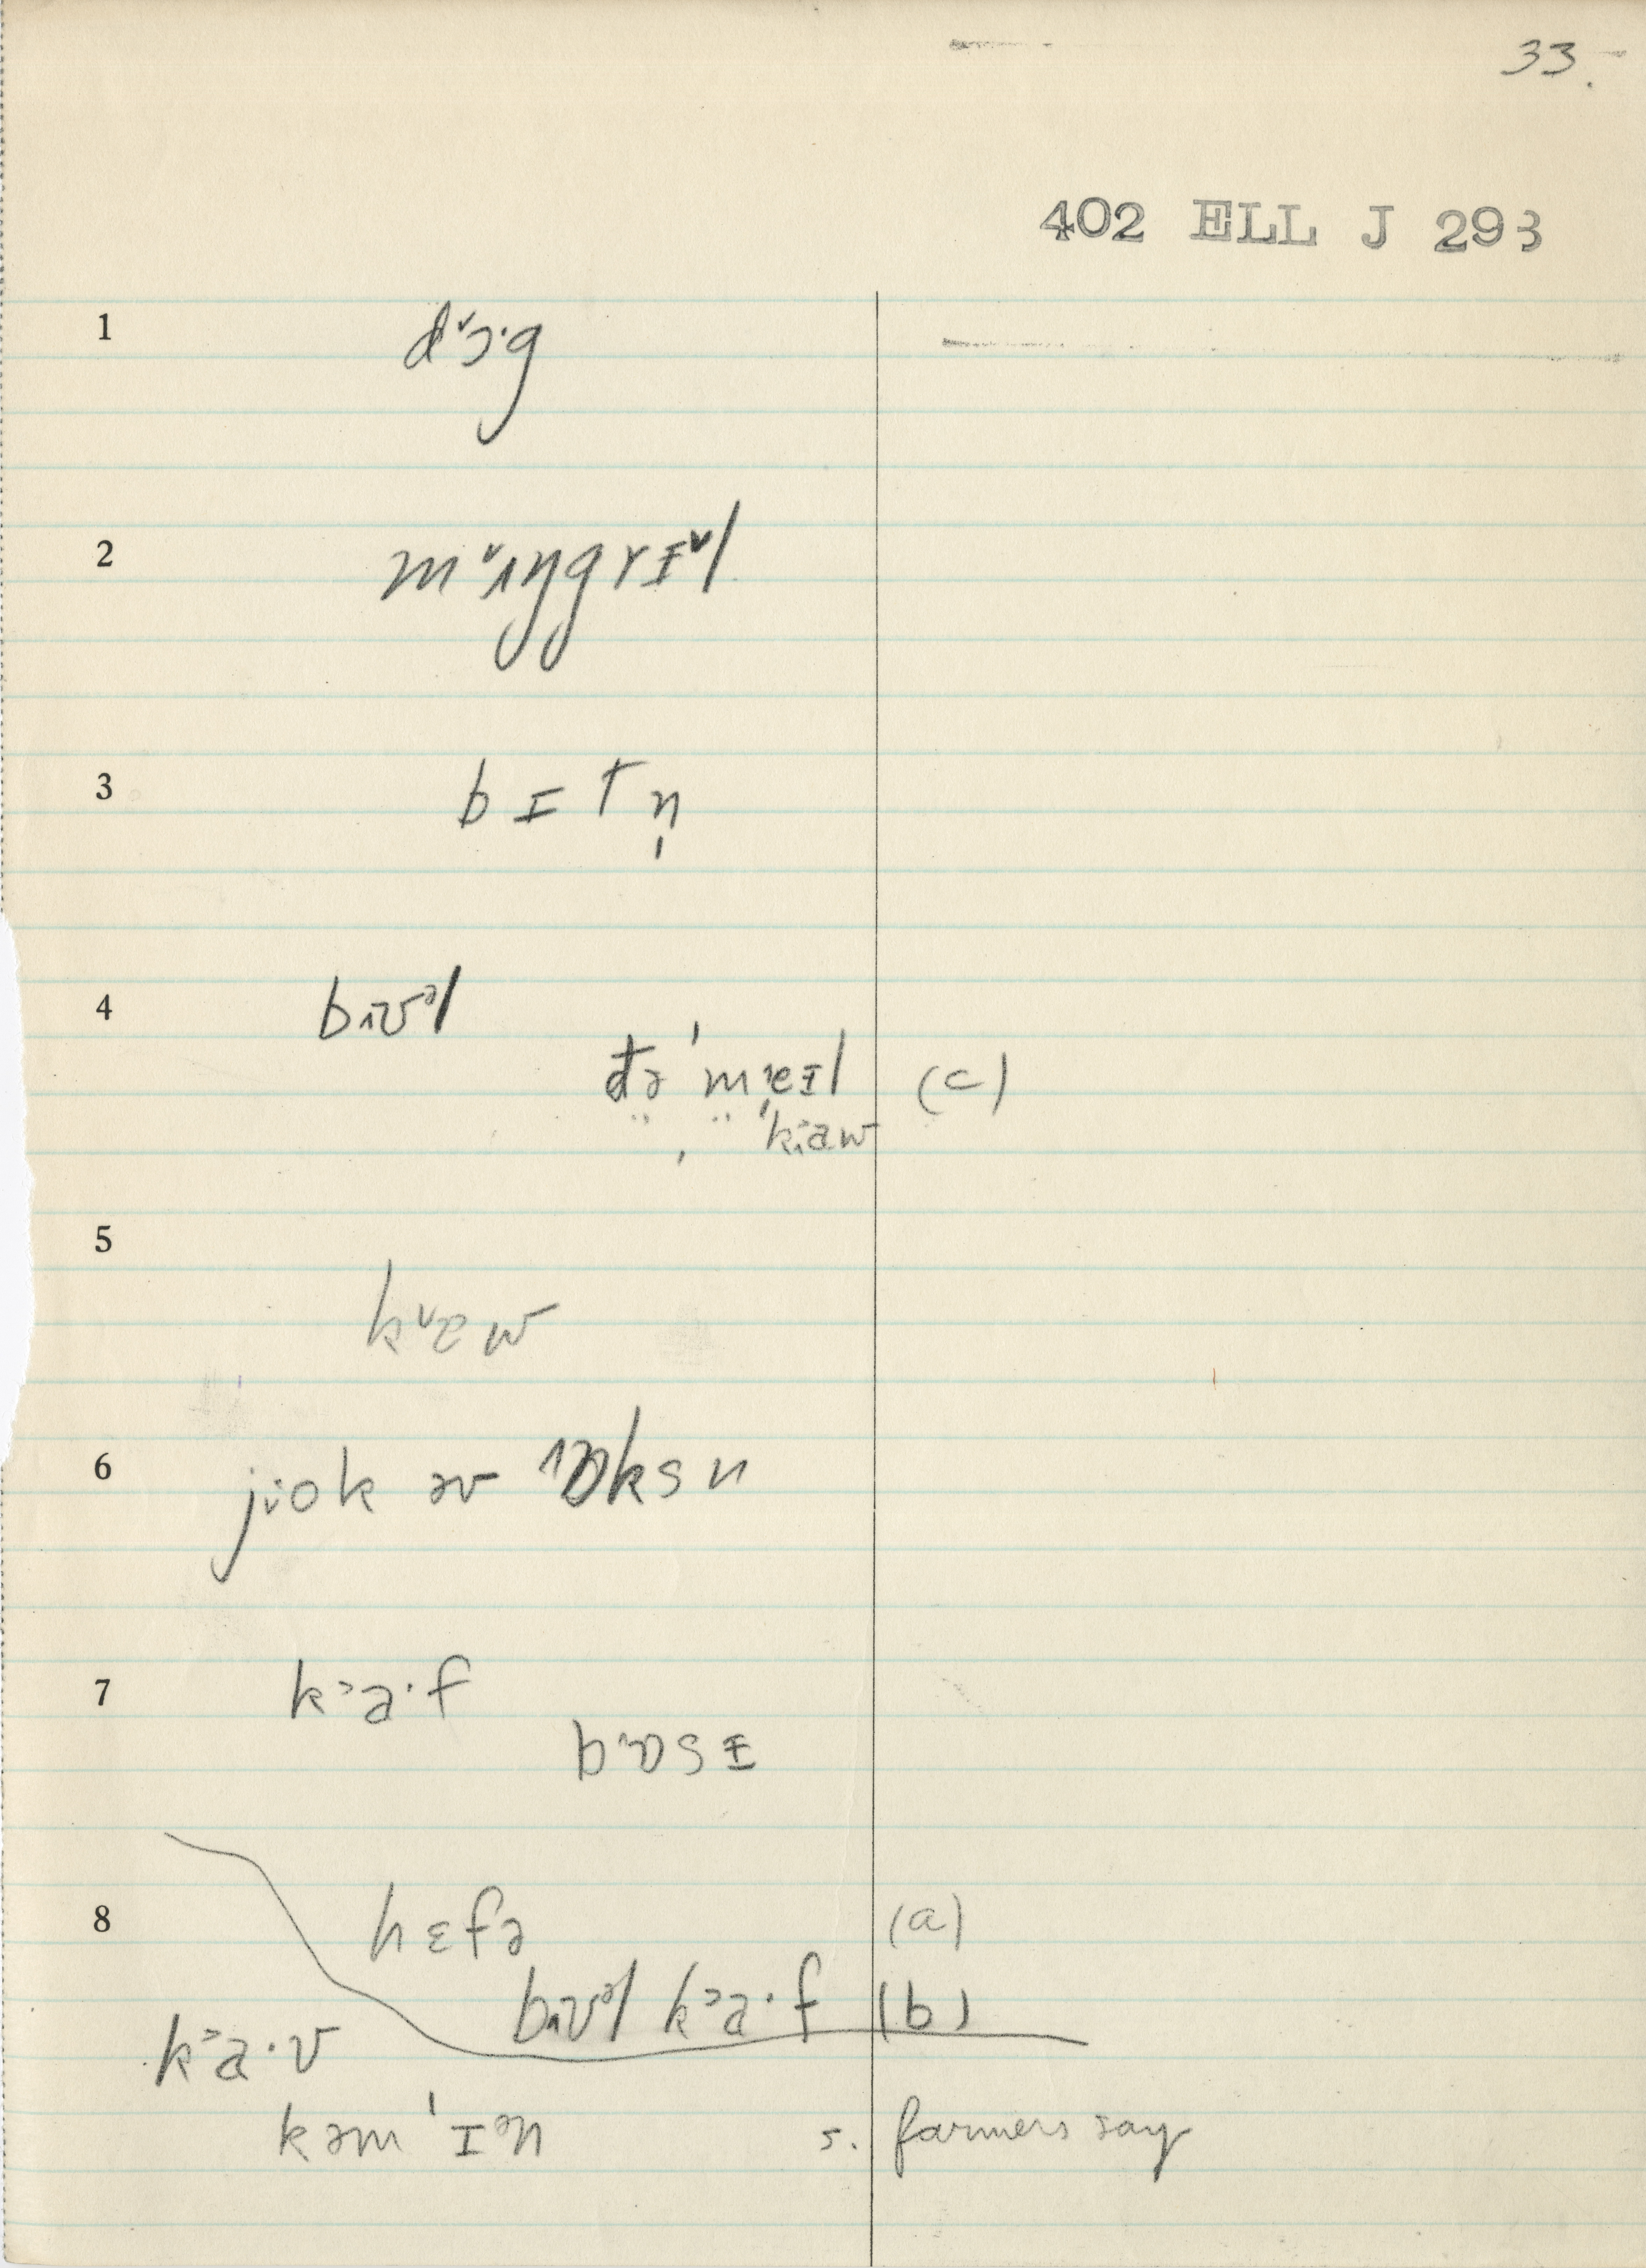 33.
402 ELL J 293
1 dˇɔ·g
2 mˇɪŋgrɪˇl
3 bɪtn̩
4 bʌʊᵊl
ðə ˈmeɪl (c)
" , " ˈkaw
5
kˇæw
6 jiok əv ɒksn
7 k˃a·f
bɒsɪ
8 hɛfə (a)
bʊᵊl k˃a·f (b)
k˃a·v
kəmˈɪᵊn s. farmers say